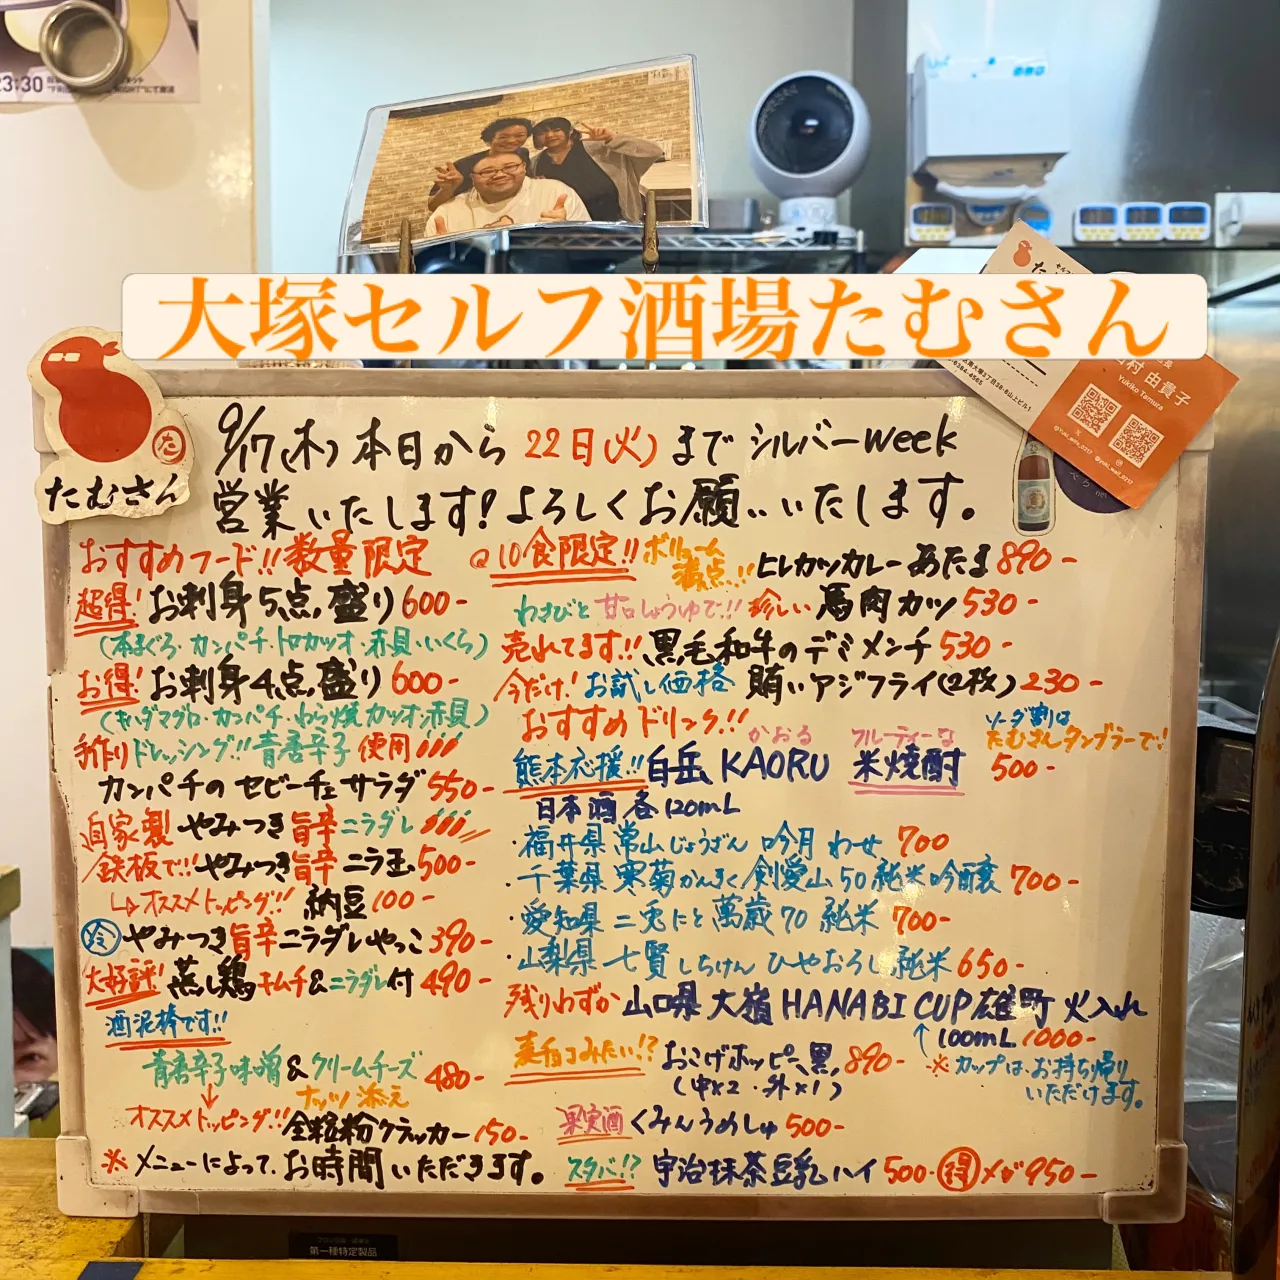 23:30
大塚セルフ酒場たむさん
村 由貴子
Yukiko Tamura
@yuki_wall_0217
た
たむさん
9/17(木)本日から22日(火)までシルバーweek
営業いたします!よろしくお願いいたします。
おすすめフード!!数量限定
超得!お刺身5点盛り600-
(本まぐろ・カンパチ・トロカツオ・赤貝・いくら)
お得!お刺身4点盛り600-
(キハダマグロ・カンパチ・わら焼カツオ・赤貝)
手作りドレッシング!!青唐辛子使用
カンパチのセビーチェサラダ550-
自家製やみつき旨辛ニラダレ
鉄板で!!やみつき旨辛ニラ玉500-
↳オススメトッピング!!納豆100-
冷やみつき旨辛ニラダレやっこ390-
大好評!蒸し鶏キムチ&ニラダレ付490-
酒泥棒です!!
青唐辛子味噌&クリームチーズ480-
ナッツ添え
↓
オススメトッピング!!全粒粉クラッカー150-
※メニューによって、お時間いただきます。
@10食限定!!ボリューム満点!!ヒレカツカレーあたま890-
わさびと甘口しょうゆで!!珍しい馬肉カツ530-
売れてます!!黒毛和牛のデミメンチ530-
今だけ!お試し価格 賄いアジフライ(2枚)230-
おすすめドリンク!!
ソーダ割は
たむさんタンブラーで!
かおる フルーティーな
熊本応援!!白岳KAORU 米焼酎 500-
日本酒各120mL
・福井県 常山じょうざん 吟月 わせ 700
・千葉県 寒菊かんぎく 剣愛山50純米吟醸700-
・愛知県 二兎にと 萬歳70 純米 700-
・山梨県 七賢しちけん ひやおろし純米650-
残りわずか 山口県 大嶺 HANABI CUP雄町 火入れ
↑100mL 1000-
※カップはお持ち帰り
いただけます。
麦チョコみたい!?おこげホッピー黒890-
(中×2・外×1)
果実酒 くみんうめしゅ500-
スタバ!?宇治抹茶豆乳ハイ500-得メガ950-
第一種特定製品